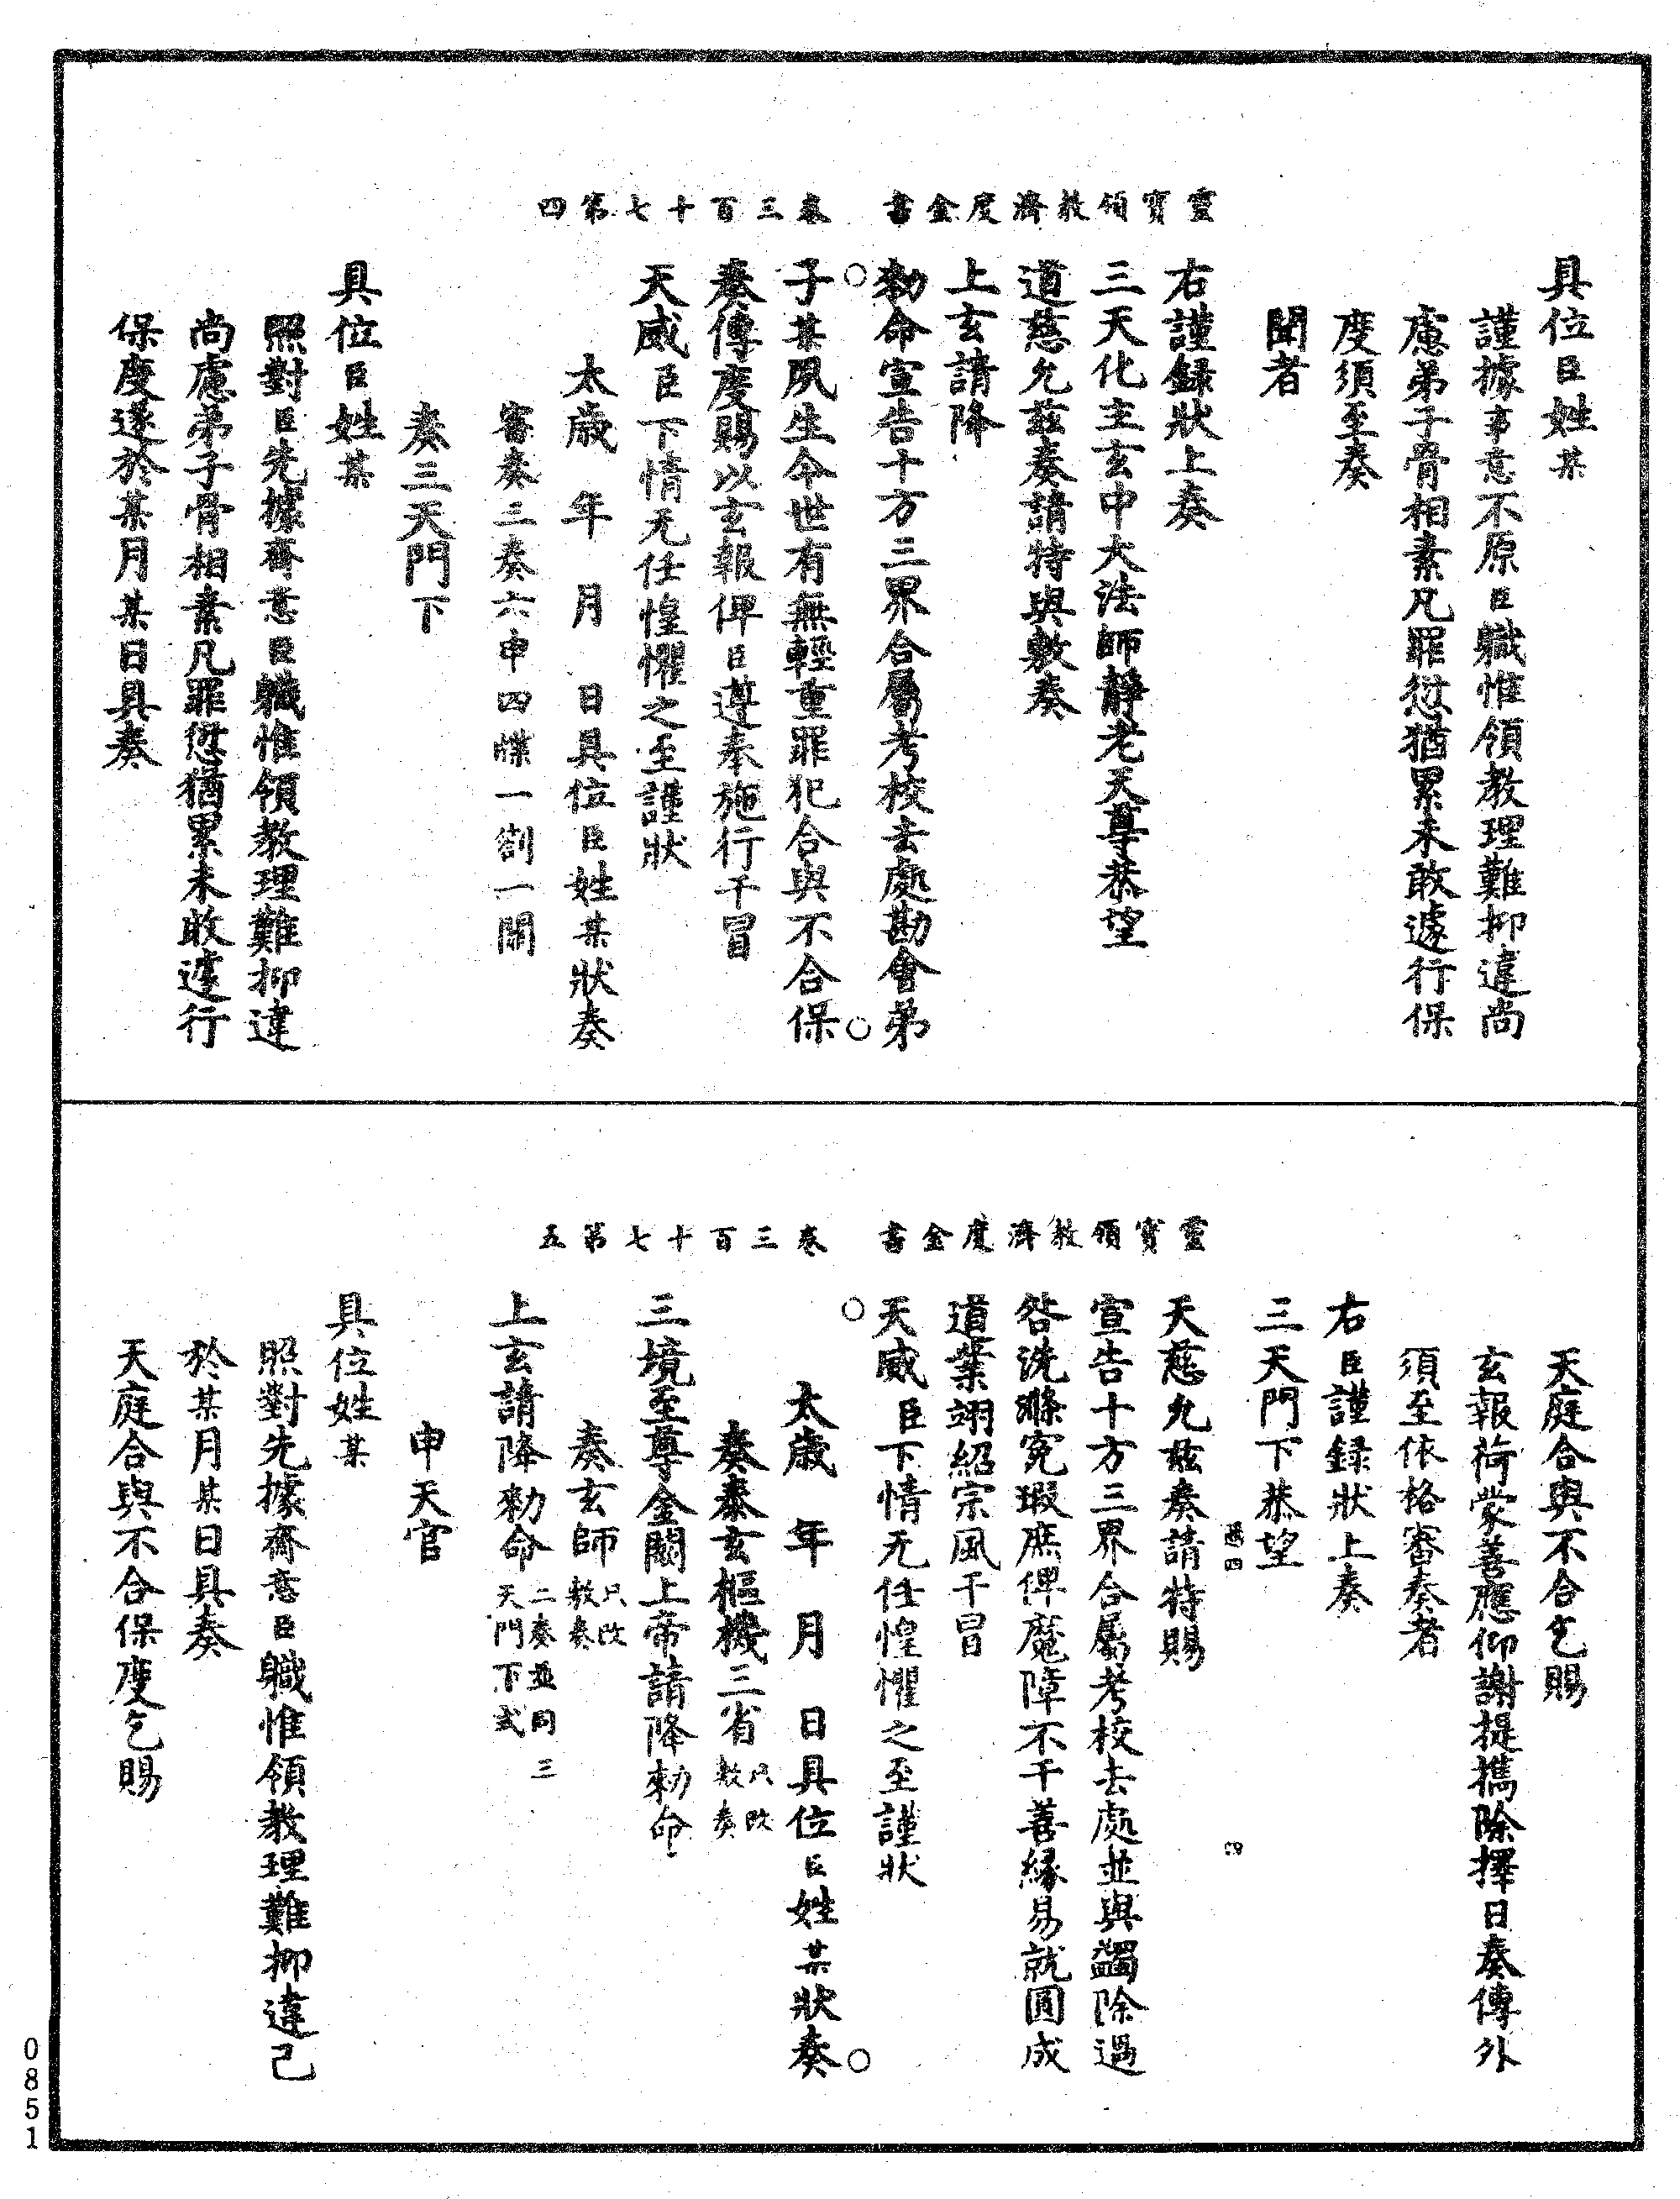 靈寶領教濟度金書　卷三百十七第四
具位臣姓某
謹據事意不原臣職惟領教理難抑違尚
慮弟子骨相素凡罪愆猶累未敢遽行保
度須至奏
聞者
右謹録狀上奏
三天化主玄中大法師靜老天尊恭望
道慈允茲奏請特與敷奏
上玄請降
勑命宣告十方三界合屬考校去處勘會弟
子某夙生今世有無輕重罪犯合與不合保
奏傳度賜以玄報俾臣遵奉施行干冒
天威臣下情无任惶懼之至謹狀
太歲　年　月　日具位臣姓某狀奏
審奏三奏六申四牒一劄一關
奏三天門下
具位臣姓某
照對臣先據齋意臣職惟領教理難抑違
尚慮弟子骨相素凡罪愆猶累未敢遽行
保度遂於某月某日具奏
靈寶領教濟度金書　卷三百十七第五
天庭合與不合乞賜
玄報荷蒙善應仰謝提攜除擇日奏傳外
須至依格審奏者
右臣謹録狀上奏
三天門下恭望
四
天慈允茲奏請特賜
宣告十方三界合屬考校去處並與蠲除過
咎洗滌冤瑕庶俾魔障不干善緣易就圓成
道業翊紹宗風干冒
天威臣下情无任惶懼之至謹狀
太歲　年　月　日具位臣姓某狀奏
奏泰玄樞機三省只改敷奏
三境至尊金闕上帝請降勑命
奏玄師只改敷奏
上玄請降勑命二奏並同三天門下式
申天官
具位姓某
照對先據齋意臣職惟領教理難抑違己
於某月某日具奏
天庭合與不合保度乞賜
0851